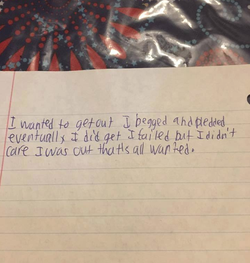 I wanted to get out I begged and pleded
eventually I did get I failed but I didn't
care I was out that's all wanted.